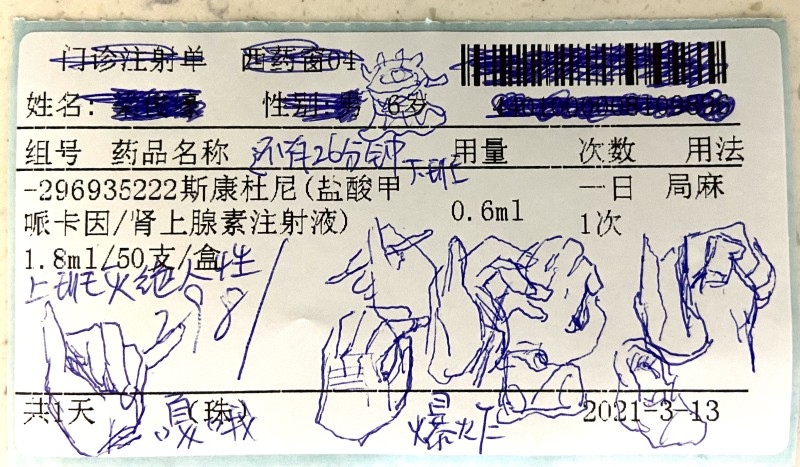 门诊注射单 西药窗04
姓名: 性别:男 6岁
组号 药品名称 还有26分钟下班 用量 次数 用法
-296935222斯康杜尼(盐酸甲 0.6ml 一日 局麻
哌卡因/肾上腺素注射液) 1次
1.8ml/50支/盒
上班灭绝人性
298/
共1天 (珠) 2021-3-13
爆炸